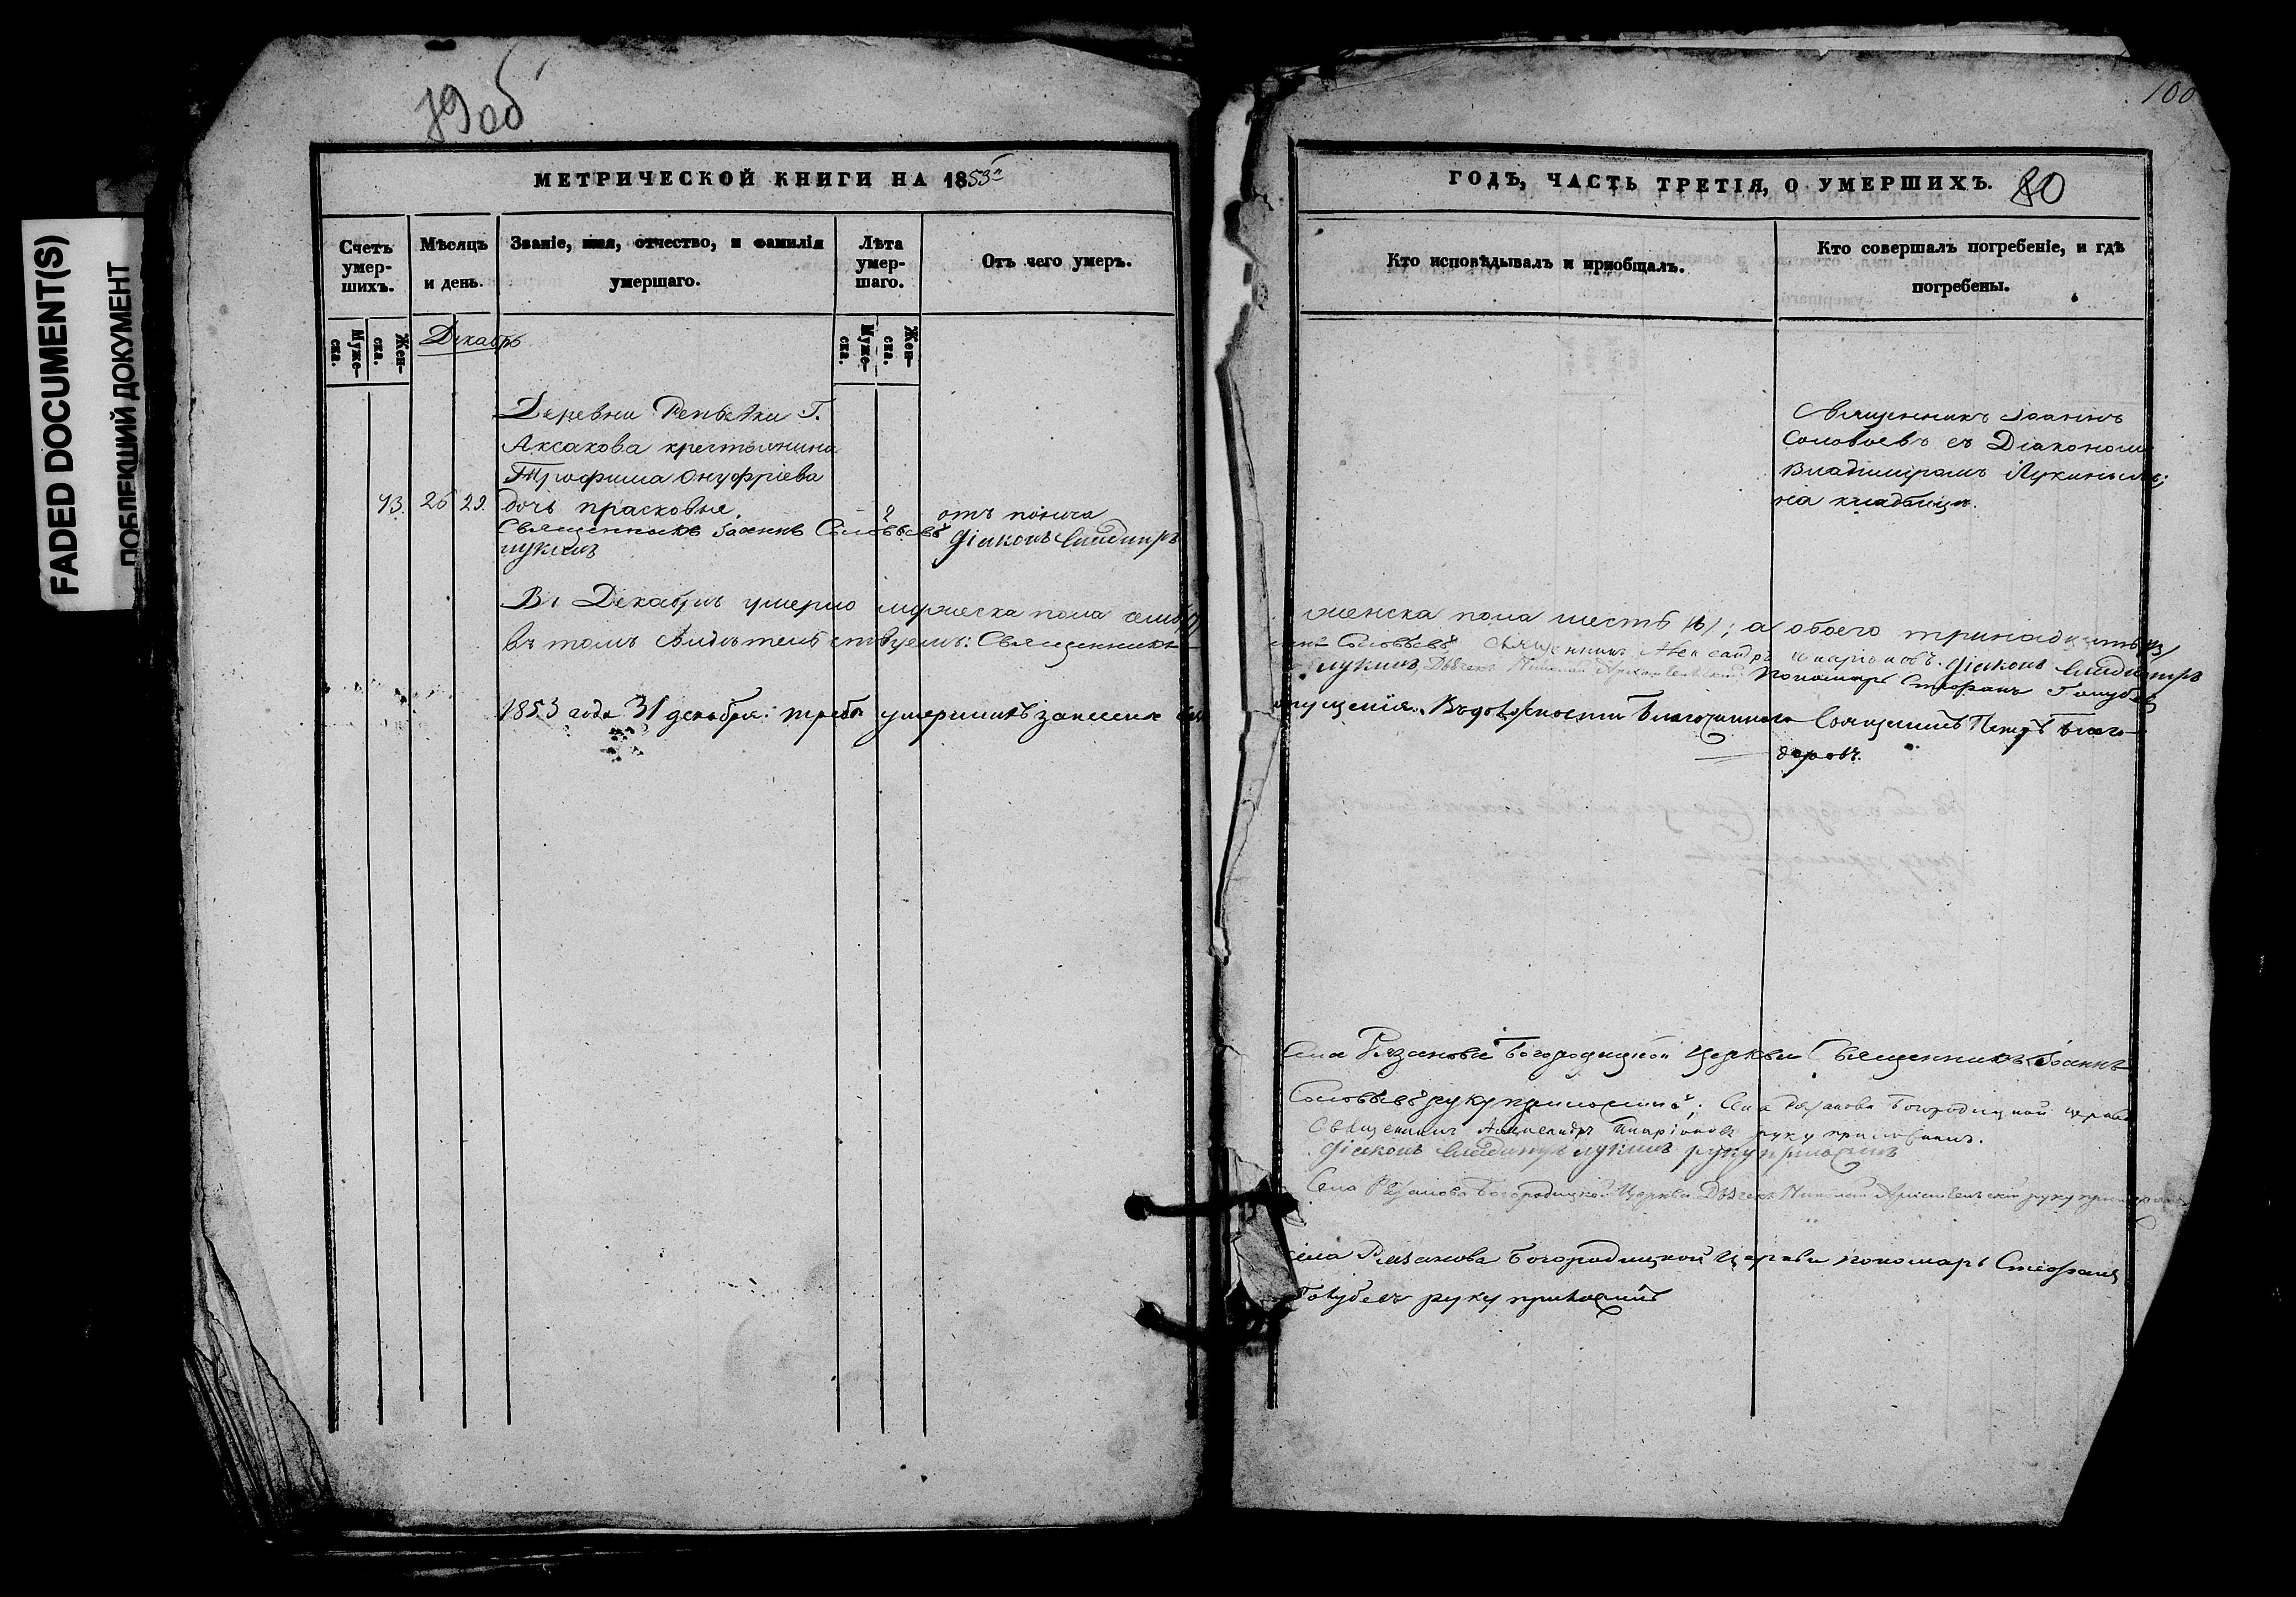 FADED DOCUMENT(S)
ПОБЛЕКШИЙ ДОКУМЕНТ
79 об
100
МЕТРИЧЕСКОЙ КНИГИ НА 1853й
ГОДЪ, ЧАСТЬ ТРЕТІЯ, О УМЕРШИХЪ. 80
Счетъ умер-шихъ.
Мѣсяцъ и день.
Званіе, имя, отчество, и фамилія умершаго.
Лѣта умер-шаго.
Отъ чего умеръ.
Кто исповѣдывалъ и приобщалъ.
Кто совершалъ погребеніе, и гдѣ погребены.
Муже-ска.
Жен-ска.
Декабрь
Муже-ска.
Жен-ска.
Деревни Репьевки Г.
Аксакова крестьянина
Трофима Онуфріева
73. 26 29. дочь прасковья. 2 отъ поноса
Священникъ Іоаннъ
Соловьевъ съ Діакономъ
Владиміромъ Лукинымъ;
на кладбищѣ.
Священникъ Іоаннъ Соловьевъ Діаконъ Владиміръ
Лукинъ
Въ Декабрѣ умерло мужеска пола семь (7)
женска пола шесть (6); а обоего тринадцать (13)
въ томъ свидѣтельствуемъ: Священникъ
Соловьевъ Священникъ Александръ Иларіоновъ. Діаконъ Владиміръ
Лукинъ, Дьячекъ Николай Пономарь Стефанъ Голубевъ
1853 года 31 декабря: треба умершихъ занесена
опущенія. Въ должности Благочиннаго Священникъ Петръ Благо-
даровъ.
Села Рязанова Богородицкой Церкви Священникъ Іоаннъ
Соловьевъ руку приложилъ; Села Рязанова Богородицкой церкви
Священникъ Александръ Иларіоновъ руку приложилъ.
Діаконъ Владиміръ Лукинъ руку приложилъ
Села Рязанова Богородицкой Церкви Дьячекъ Николай руку приложилъ
села Рязанова Богородицкой Церкви пономарь Стефанъ
Голубевъ руку приложилъ